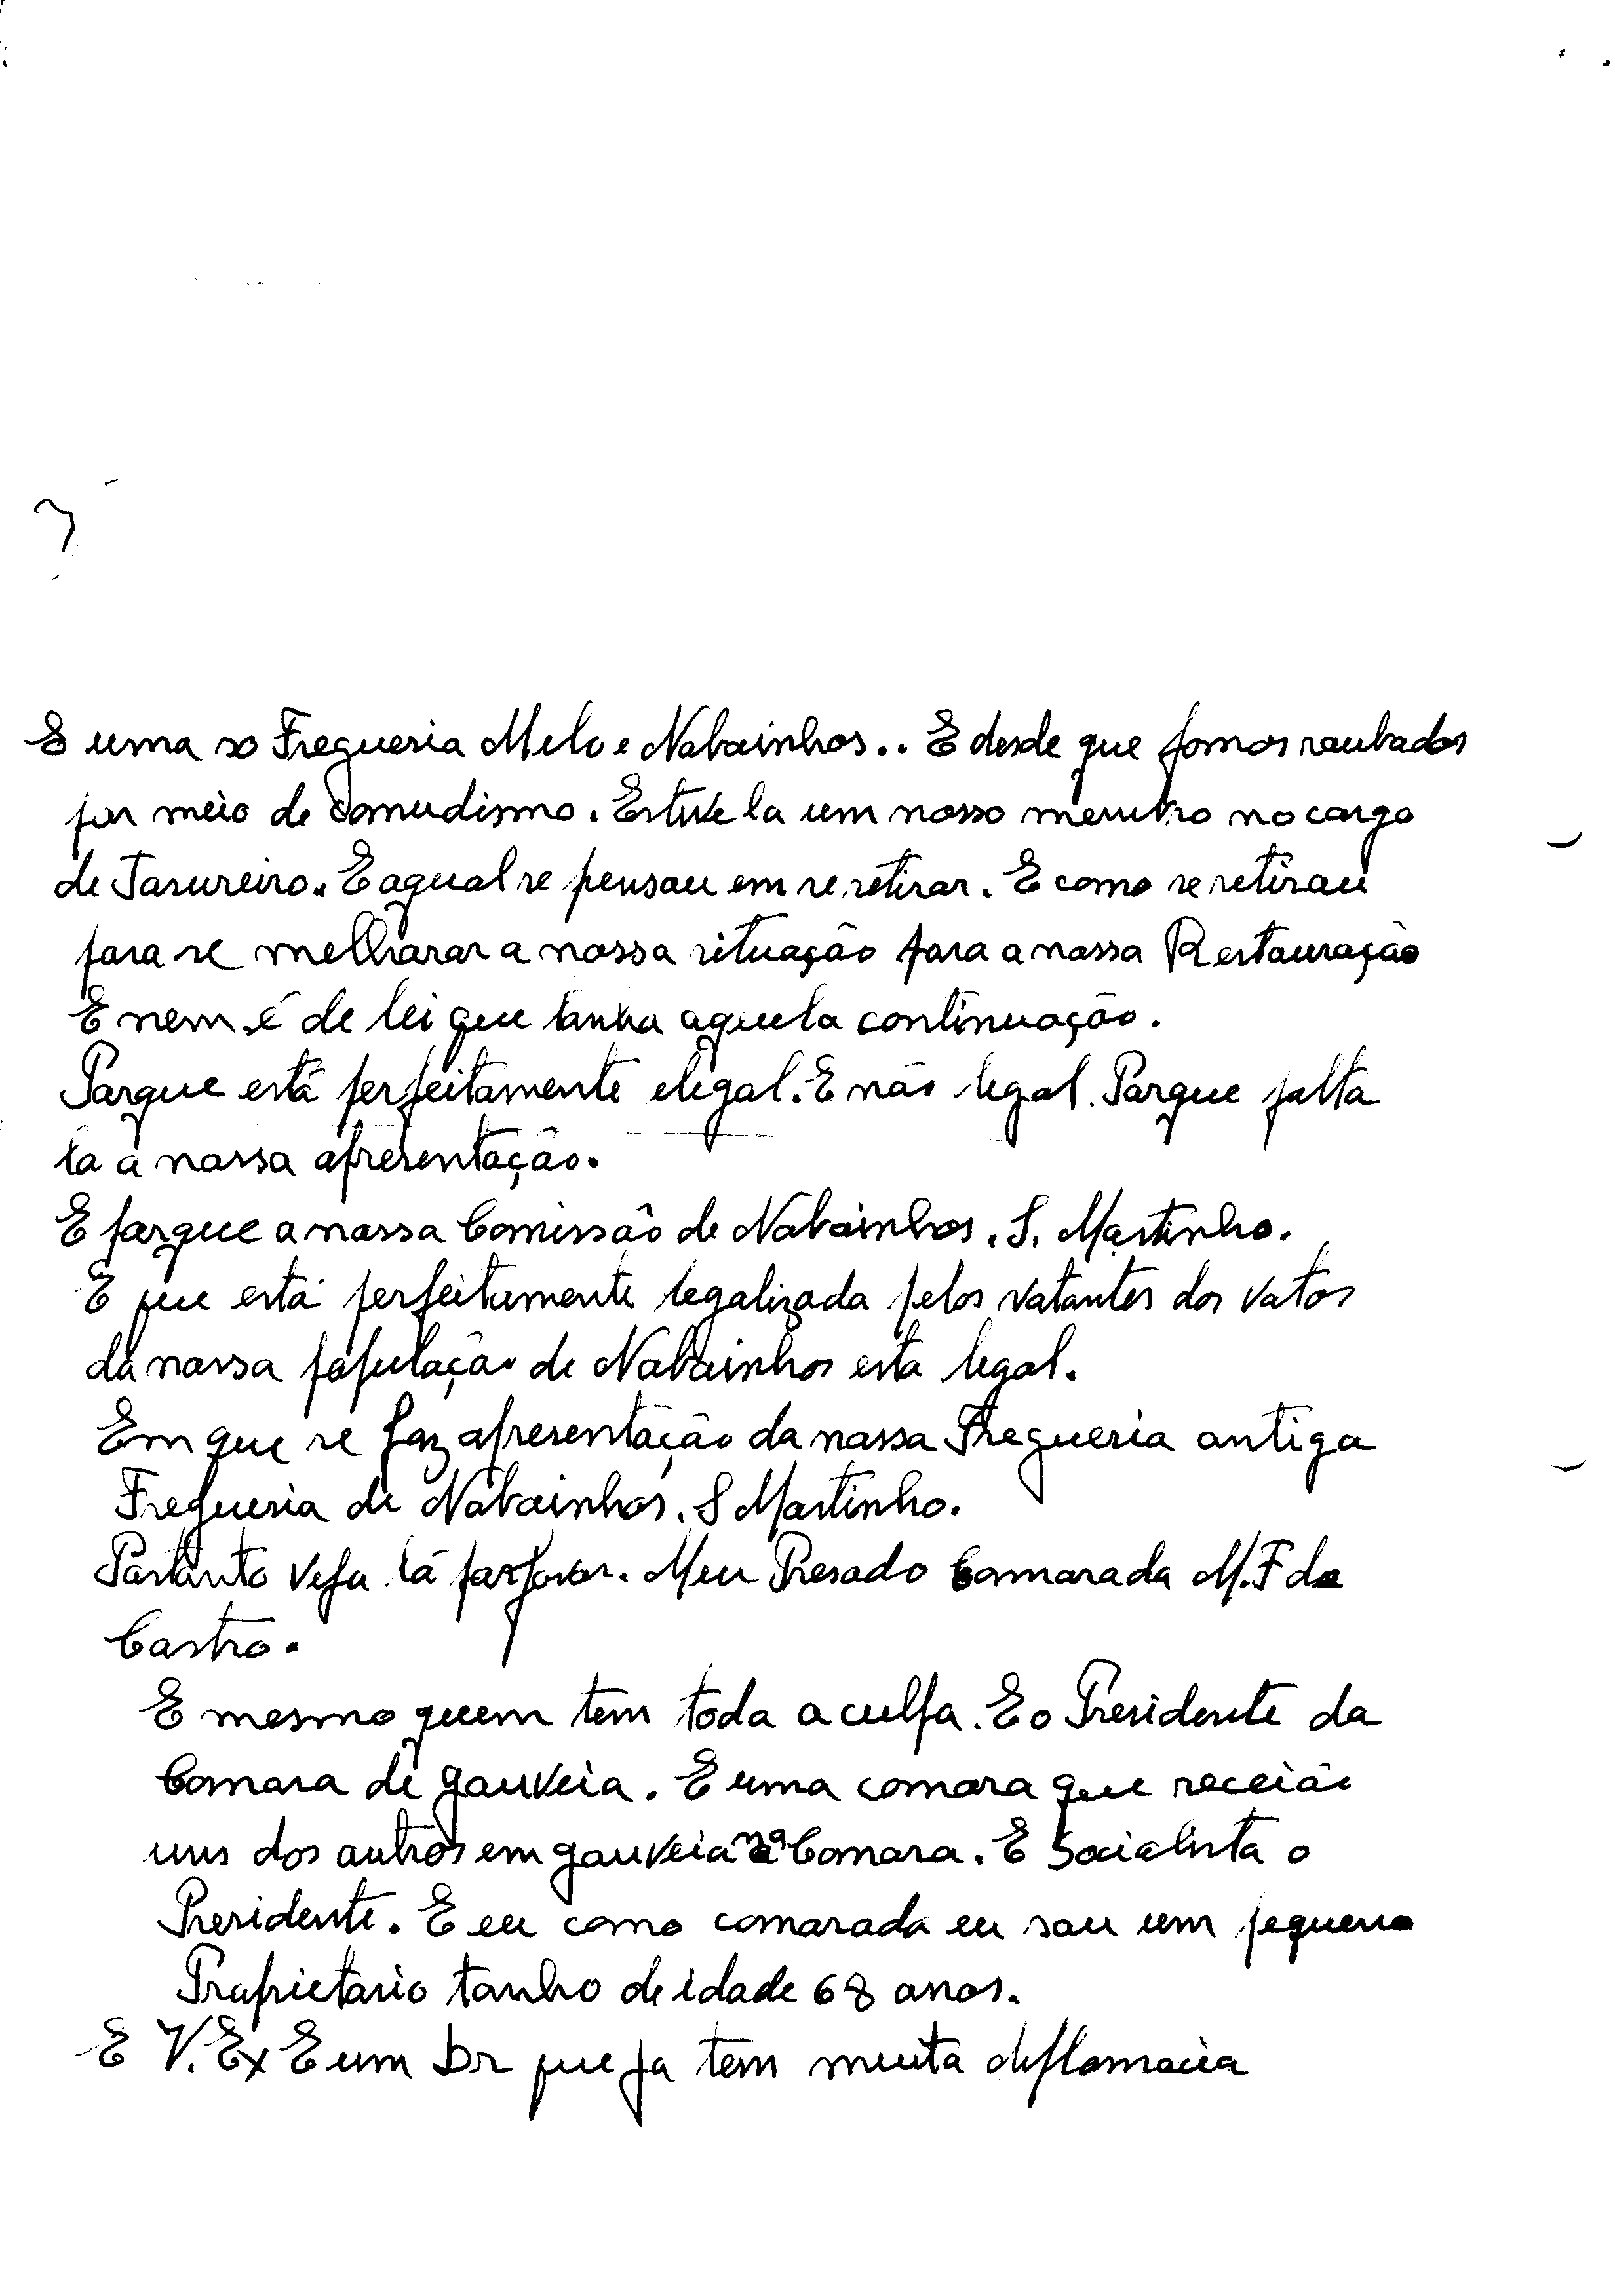 E uma so Fregueria Melo e Nabainhos.. E desde que fomos raubados
por meio de comudismo. Estive la um nosso membro no cargo
de Tasureiro. E aqual se pensau em se retirar. E como se retirau
para se melharar a nossa situação para a nassa Restauração
E nem é de lei que tanha aquela continuação.
Parque está perfeitamente elegal. E não legal. Parque falta
la a nassa apresentação.
E parque a nassa Comissão de Nabainhos. S. Martinho.
E que está perfeitamente legalizada pelos vatantes dos vatos
da nassa papulação de Nabainhos esta legal.
Em que se faz apresentação da nassa Fregueria antiga
Fregueria de Nabainhos. S Martinho.
Partanto veja lá parfavor. Meu Presado Camarada M.F da
Castro.
E mesmo quem tem toda a culpa. E o Presidente da
Camara de gauveia. E uma camara que receião
uns dos autros em gauveia na Camara. E Socialista o
Presidente. E eu como camarada eu sau um pequeno
Prapietario tanho de idade 68 anos.
E V. Ex E um Dr que ja tem muita deplomacia